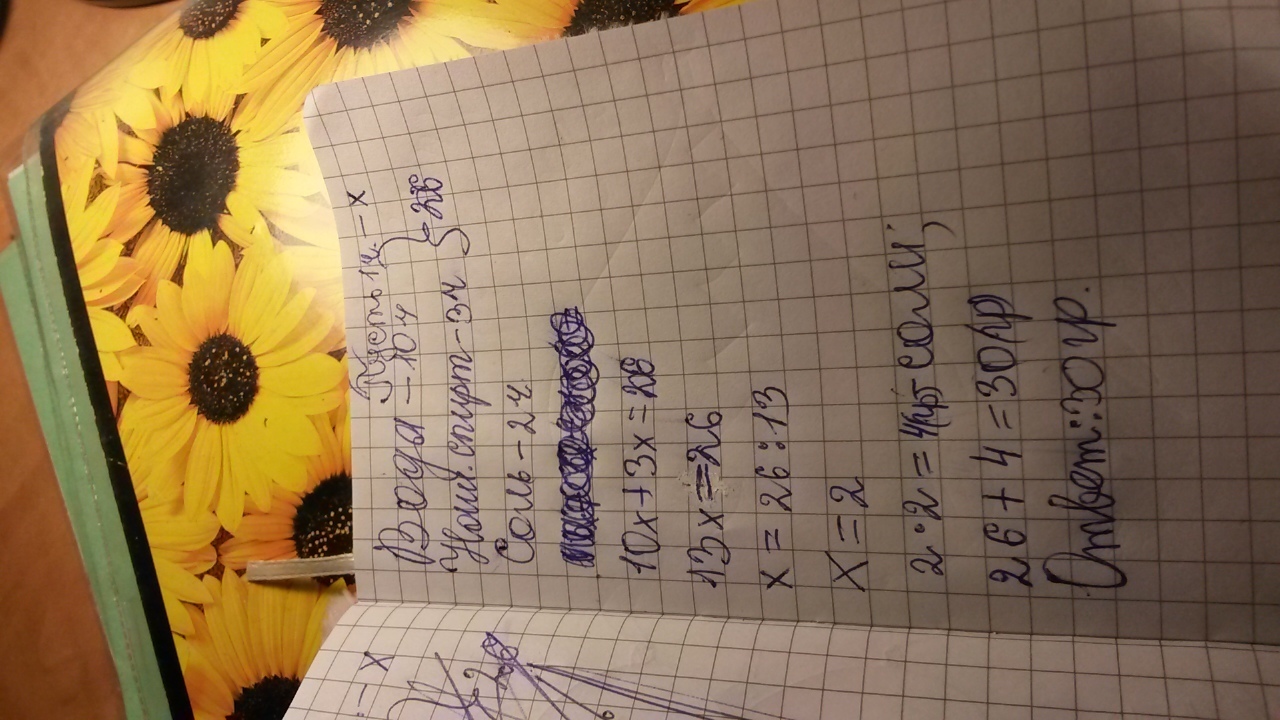 Пусть 1ч. – x
Вода – 10ч
Наш. спирт – 3ч } – 26
Соль – 2ч.
10x + 3x = 26
13x = 26
x = 26 : 13
x = 2
2 · 2 = 4(гр) соли;
26 + 4 = 30 гр
Ответ: 30 гр.
– x